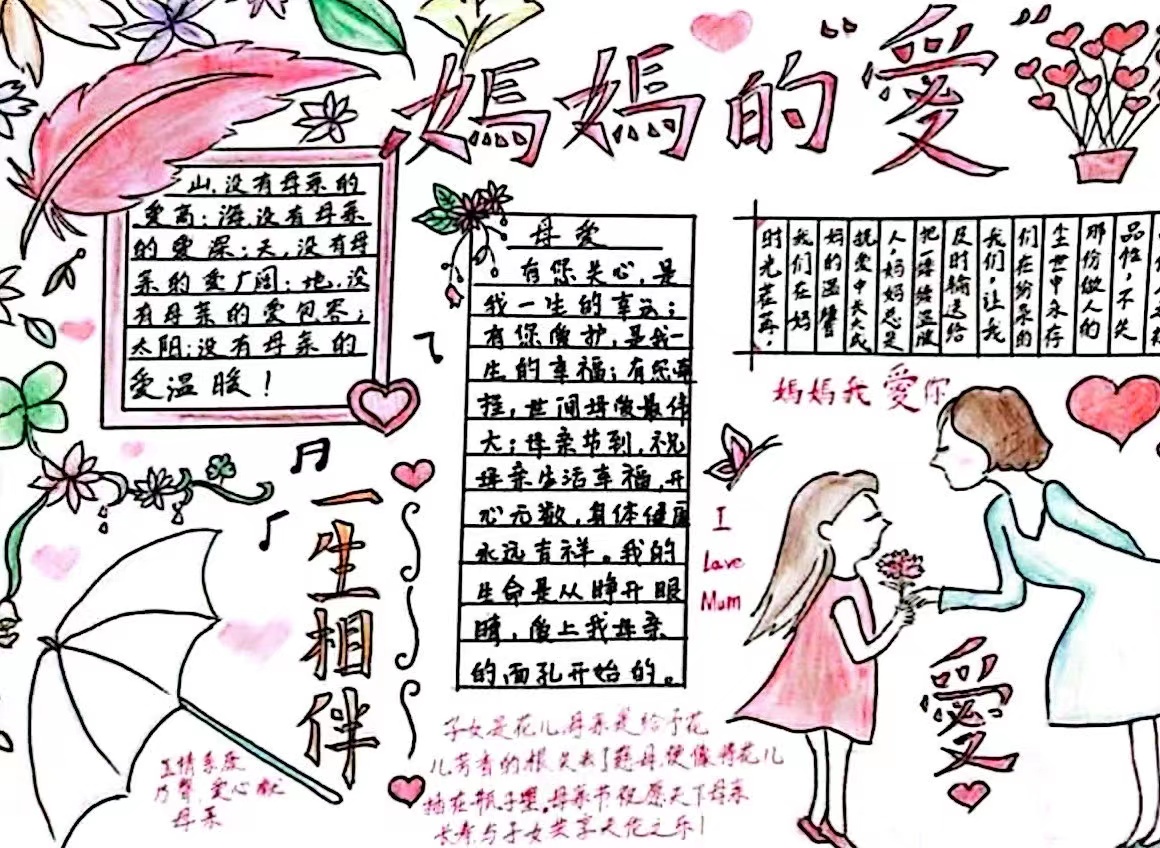 媽媽的“愛”
山,没有母亲的
爱高;海,没有母亲
的爱深;天,没有母
亲的爱广阔;地,没
有母亲的爱包容;
太阳;没有母亲的
爱温暖!
母爱
有您关心,是
我一生的幸运;
有你爱护,是我一
生的幸福;有您牵
挂,世间母爱最伟
大;母亲节到,祝
母亲生活幸福,开
心无数,身体健康
永远吉祥。我的
生命是从睁开眼
睛,爱上我母亲
的面孔开始的。
品性,不失
那份做人的
尘世中永存
们在纷杂的
我们,让我
及时输送给
把一缕缕温暖
人,妈妈总是
抚爱中长大成
妈的温馨
我们在妈
时光荏苒,
媽媽我愛你
I
Love
Mum
愛
一生相伴
子女是花儿,母亲是给予花
儿芳香的根失去了慈母,便像将花儿
插在瓶子里。母亲节祝愿天下母亲
长寿与子女共享天伦之乐!
爱心献
母亲